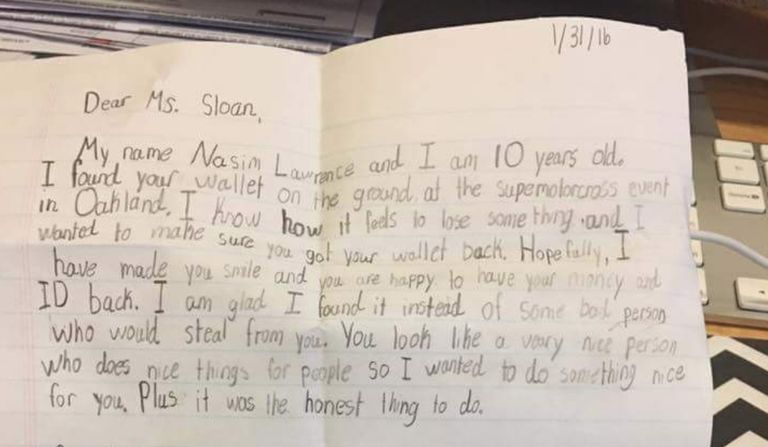 1/31/16
Dear Ms. Sloan,
My name Nasim Lawrence and I am 10 years old.
I found your wallet on the ground, at the supemotorcross event
in Oakland. I know how it feels to lose something and I
wanted to make sure you got your wallet back. Hopefully, I
have made you smile and you are happy to have your money and
ID back. I am glad I found it instead of some bad person
who would steal from you. You look like a veary nice person
who does nice things for people so I wanted to do something nice
for you. Plus it was the honest thing to do.